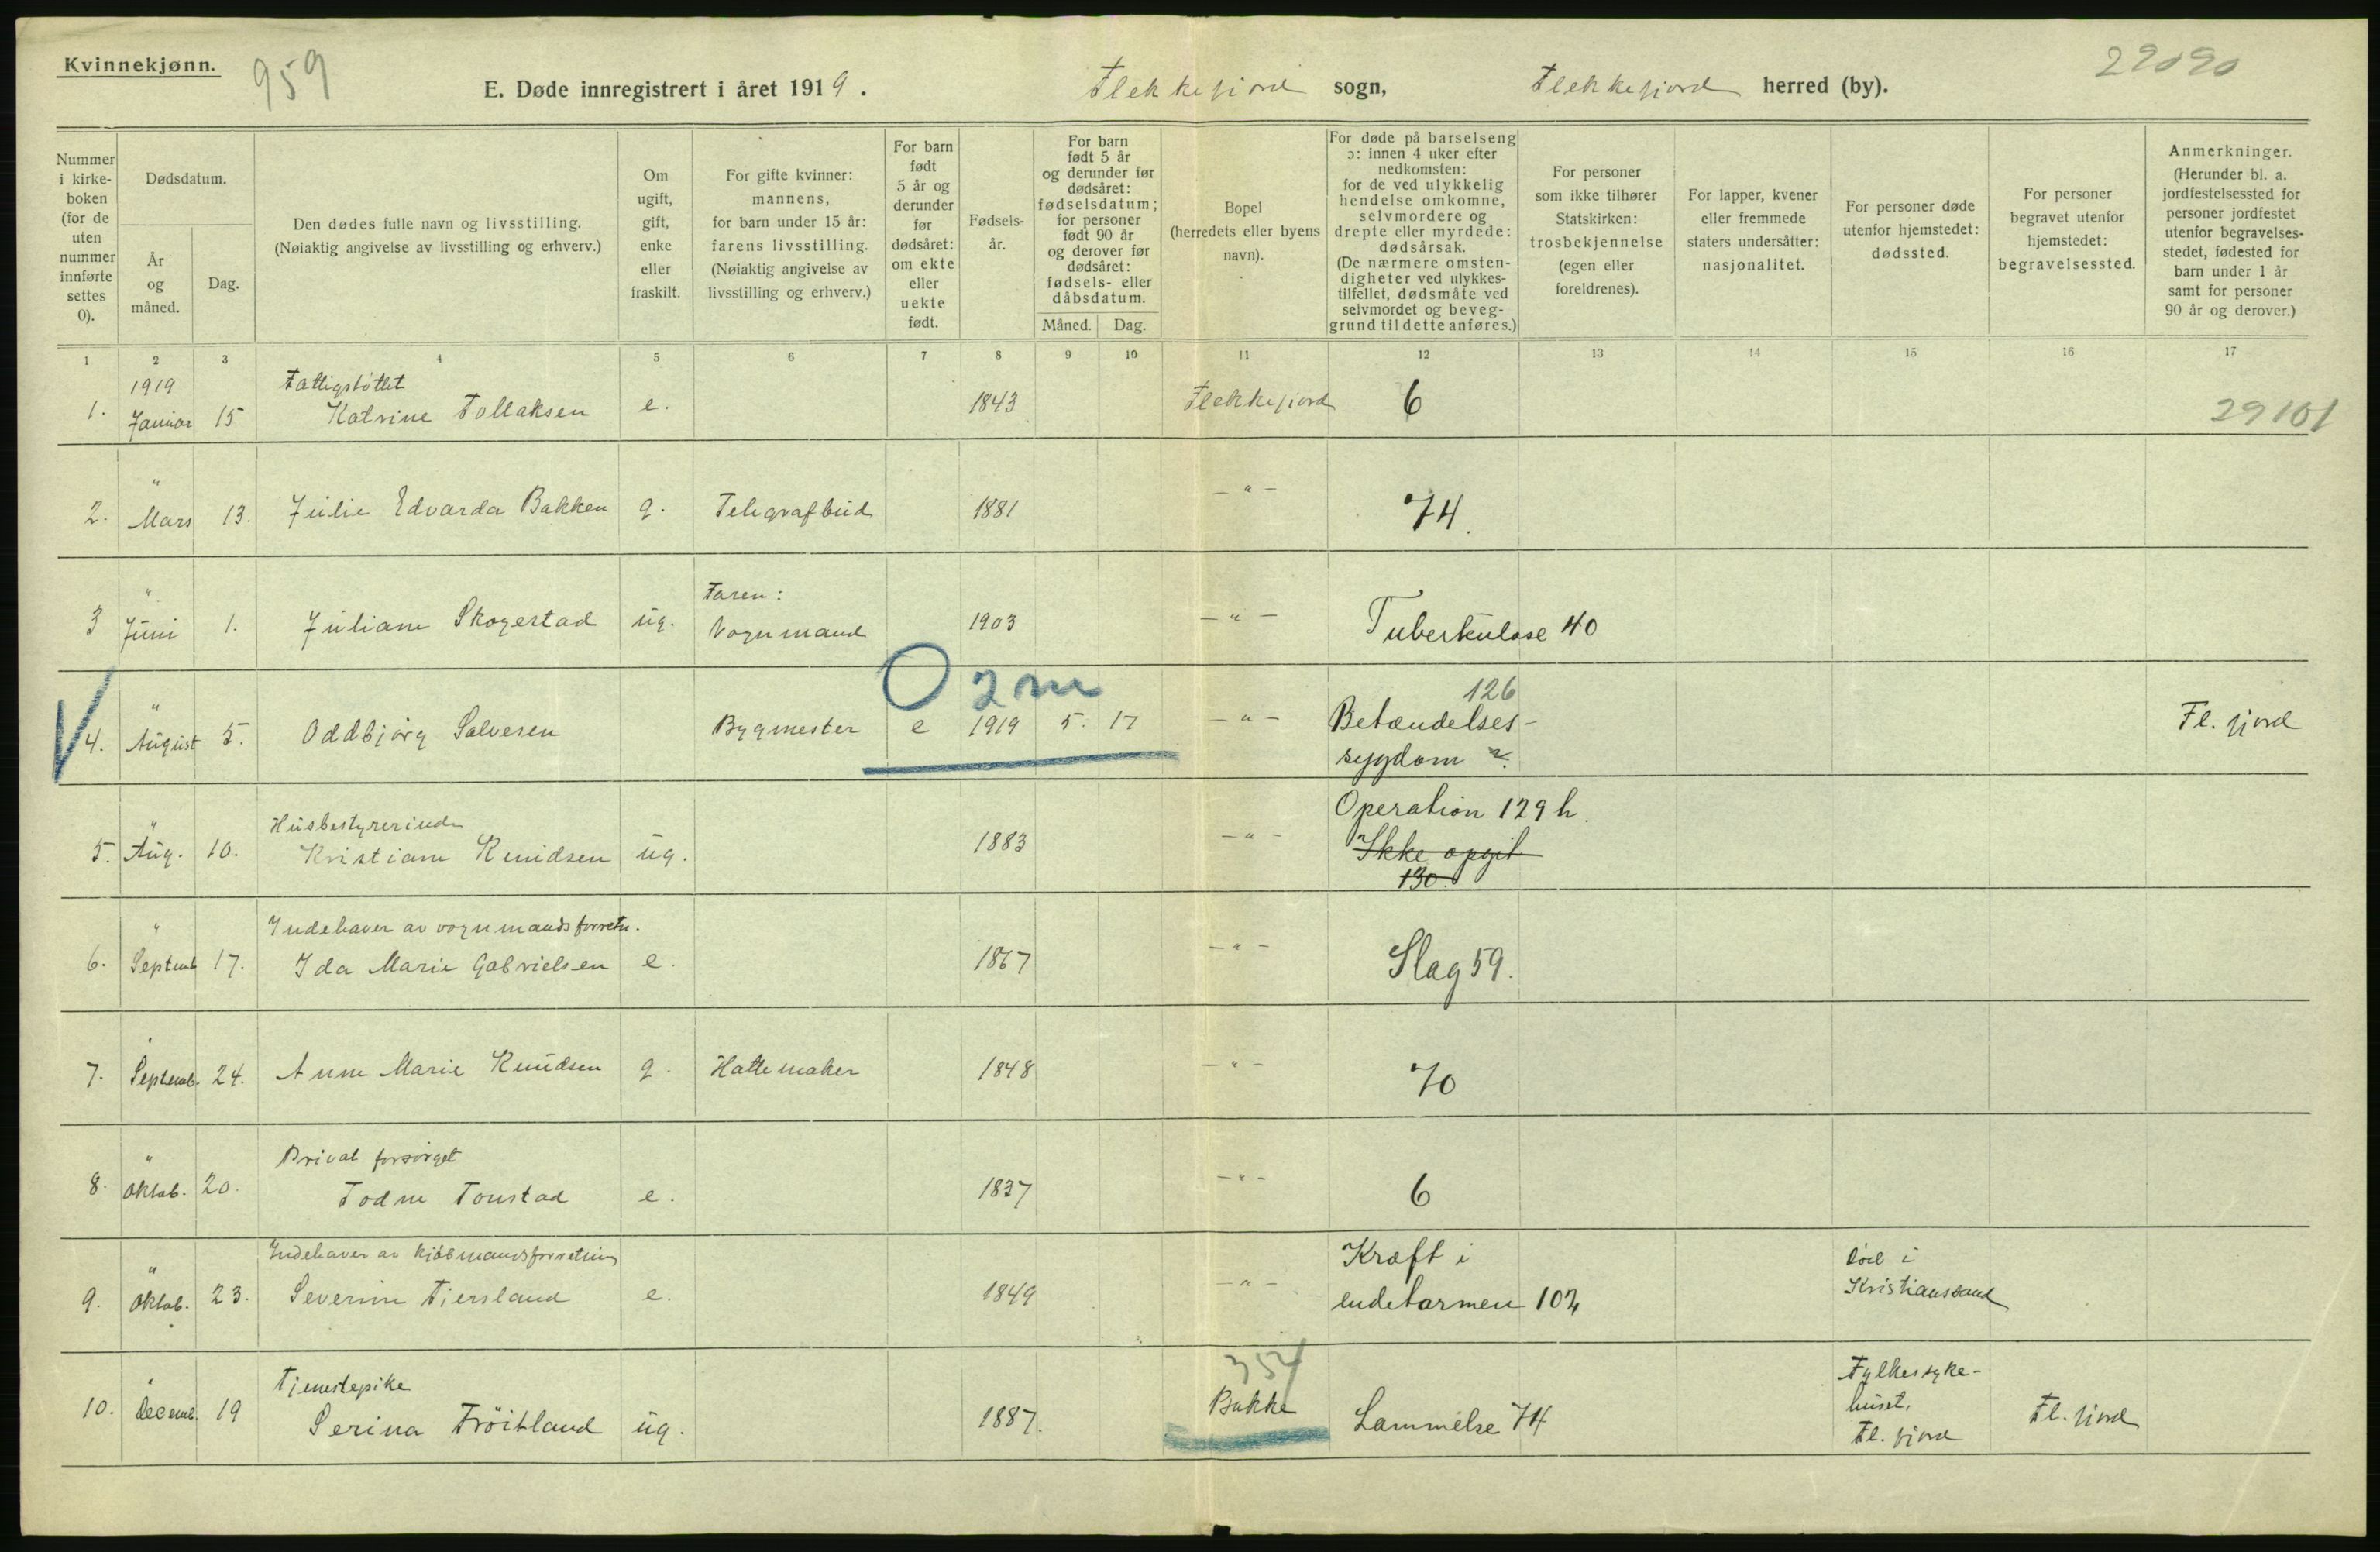 Kvinnekjønn.
959
E. Døde innregistrert i året 1919.
Flekkefjord sogn,
Flekkefjord herred (by).
29090
Nummer i kirke-boken (for de uten nummer innførte settes 0).
Dødsdatum.
År og måned.
Dag.
Den dødes fulle navn og livsstilling.
(Nøiaktig angivelse av livsstilling og erhverv.)
Om ugift, gift, enke eller fraskilt.
For gifte kvinner: mannens, for barn under 15 år: farens livsstilling. (Nøiaktig angivelse av livsstilling og erhverv.)
For barn født 5 år og derunder før dødsåret: om ekte eller uekte født.
Fødsels-år.
For barn født 5 år og derunder før dødsåret: fødselsdatum; for personer født 90 år og derover før dødsåret: fødsels- eller dåbsdatum.
Måned.
Dag.
Bopel (herredets eller byens navn).
For døde på barselseng ɔ: innen 4 uker efter nedkomsten: for de ved ulykkelig hendelse omkomne, selvmordere og drepte eller myrdede: dødsårsak. (De nærmere omsten-digheter ved ulykkes-tilfellet, dødsmåte ved selvmordet og beveg-grund til dette anføres.)
For personer som ikke tilhører Statskirken: trosbekjennelse (egen eller foreldrenes).
For lapper, kvener eller fremmede staters undersåtter: nasjonalitet.
For personer døde utenfor hjemstedet: dødssted.
For personer begravet utenfor hjemstedet: begravelsessted.
Anmerkninger. (Herunder bl. a. jordfestelsessted for personer jordfestet utenfor begravelses-stedet, fødested for barn under 1 år samt for personer 90 år og derover.)
1 2 3 4 5 6 7 8 9 10 11 12 13 14 15 16 17
1919 Fattigstøttet
1. Januar 15 Katrine Tollaksen e. 1843 Flekkefjord 6 29101
"
2. Mars 13. Julie Edvarda Bakken g. Telegrafbud 1881 - " - 74.
" Faren:
3 Juni 1. Juliane Skogestad ug. Vognmand 1903 - " - Tuberkulose 40
O 2 m
" 126
4. August 5. Oddbjørg Salvesen Bygmester e 1919 5. 17 - " - Betændelses- Fl. fjord
sygdom
" Husbestyrerinde Operation 129 h.
5. Aug. 10. Kristiane Knudsen ug. 1883 - " - Ikke opgit
130
" Indehaver av vognmandsforretn.
6. Septemb 17. Ida Marie Gabrielsen e. 1867 - " - Slag 59.
"
7. Septemb. 24. Anne Marie Knudsen g. Hattemaker 1848 - " - 70
" Privat forsørget
8. Oktob. 20. Todne Tonstad e. 1837 - " - 6
" Indehaver av kjøbmandsforretning Kræft i Død i
9. Oktob. 23. Severine Fjersland e. 1849 - " - endetarmen 102 Kristianssand
" Tjenestepike 354 Fylkessyke-
10. Decemb. 19 Serina Frøitland ug. 1887. Bakke Lammelse 74 huset, Fl. fjord
Fl. fjord